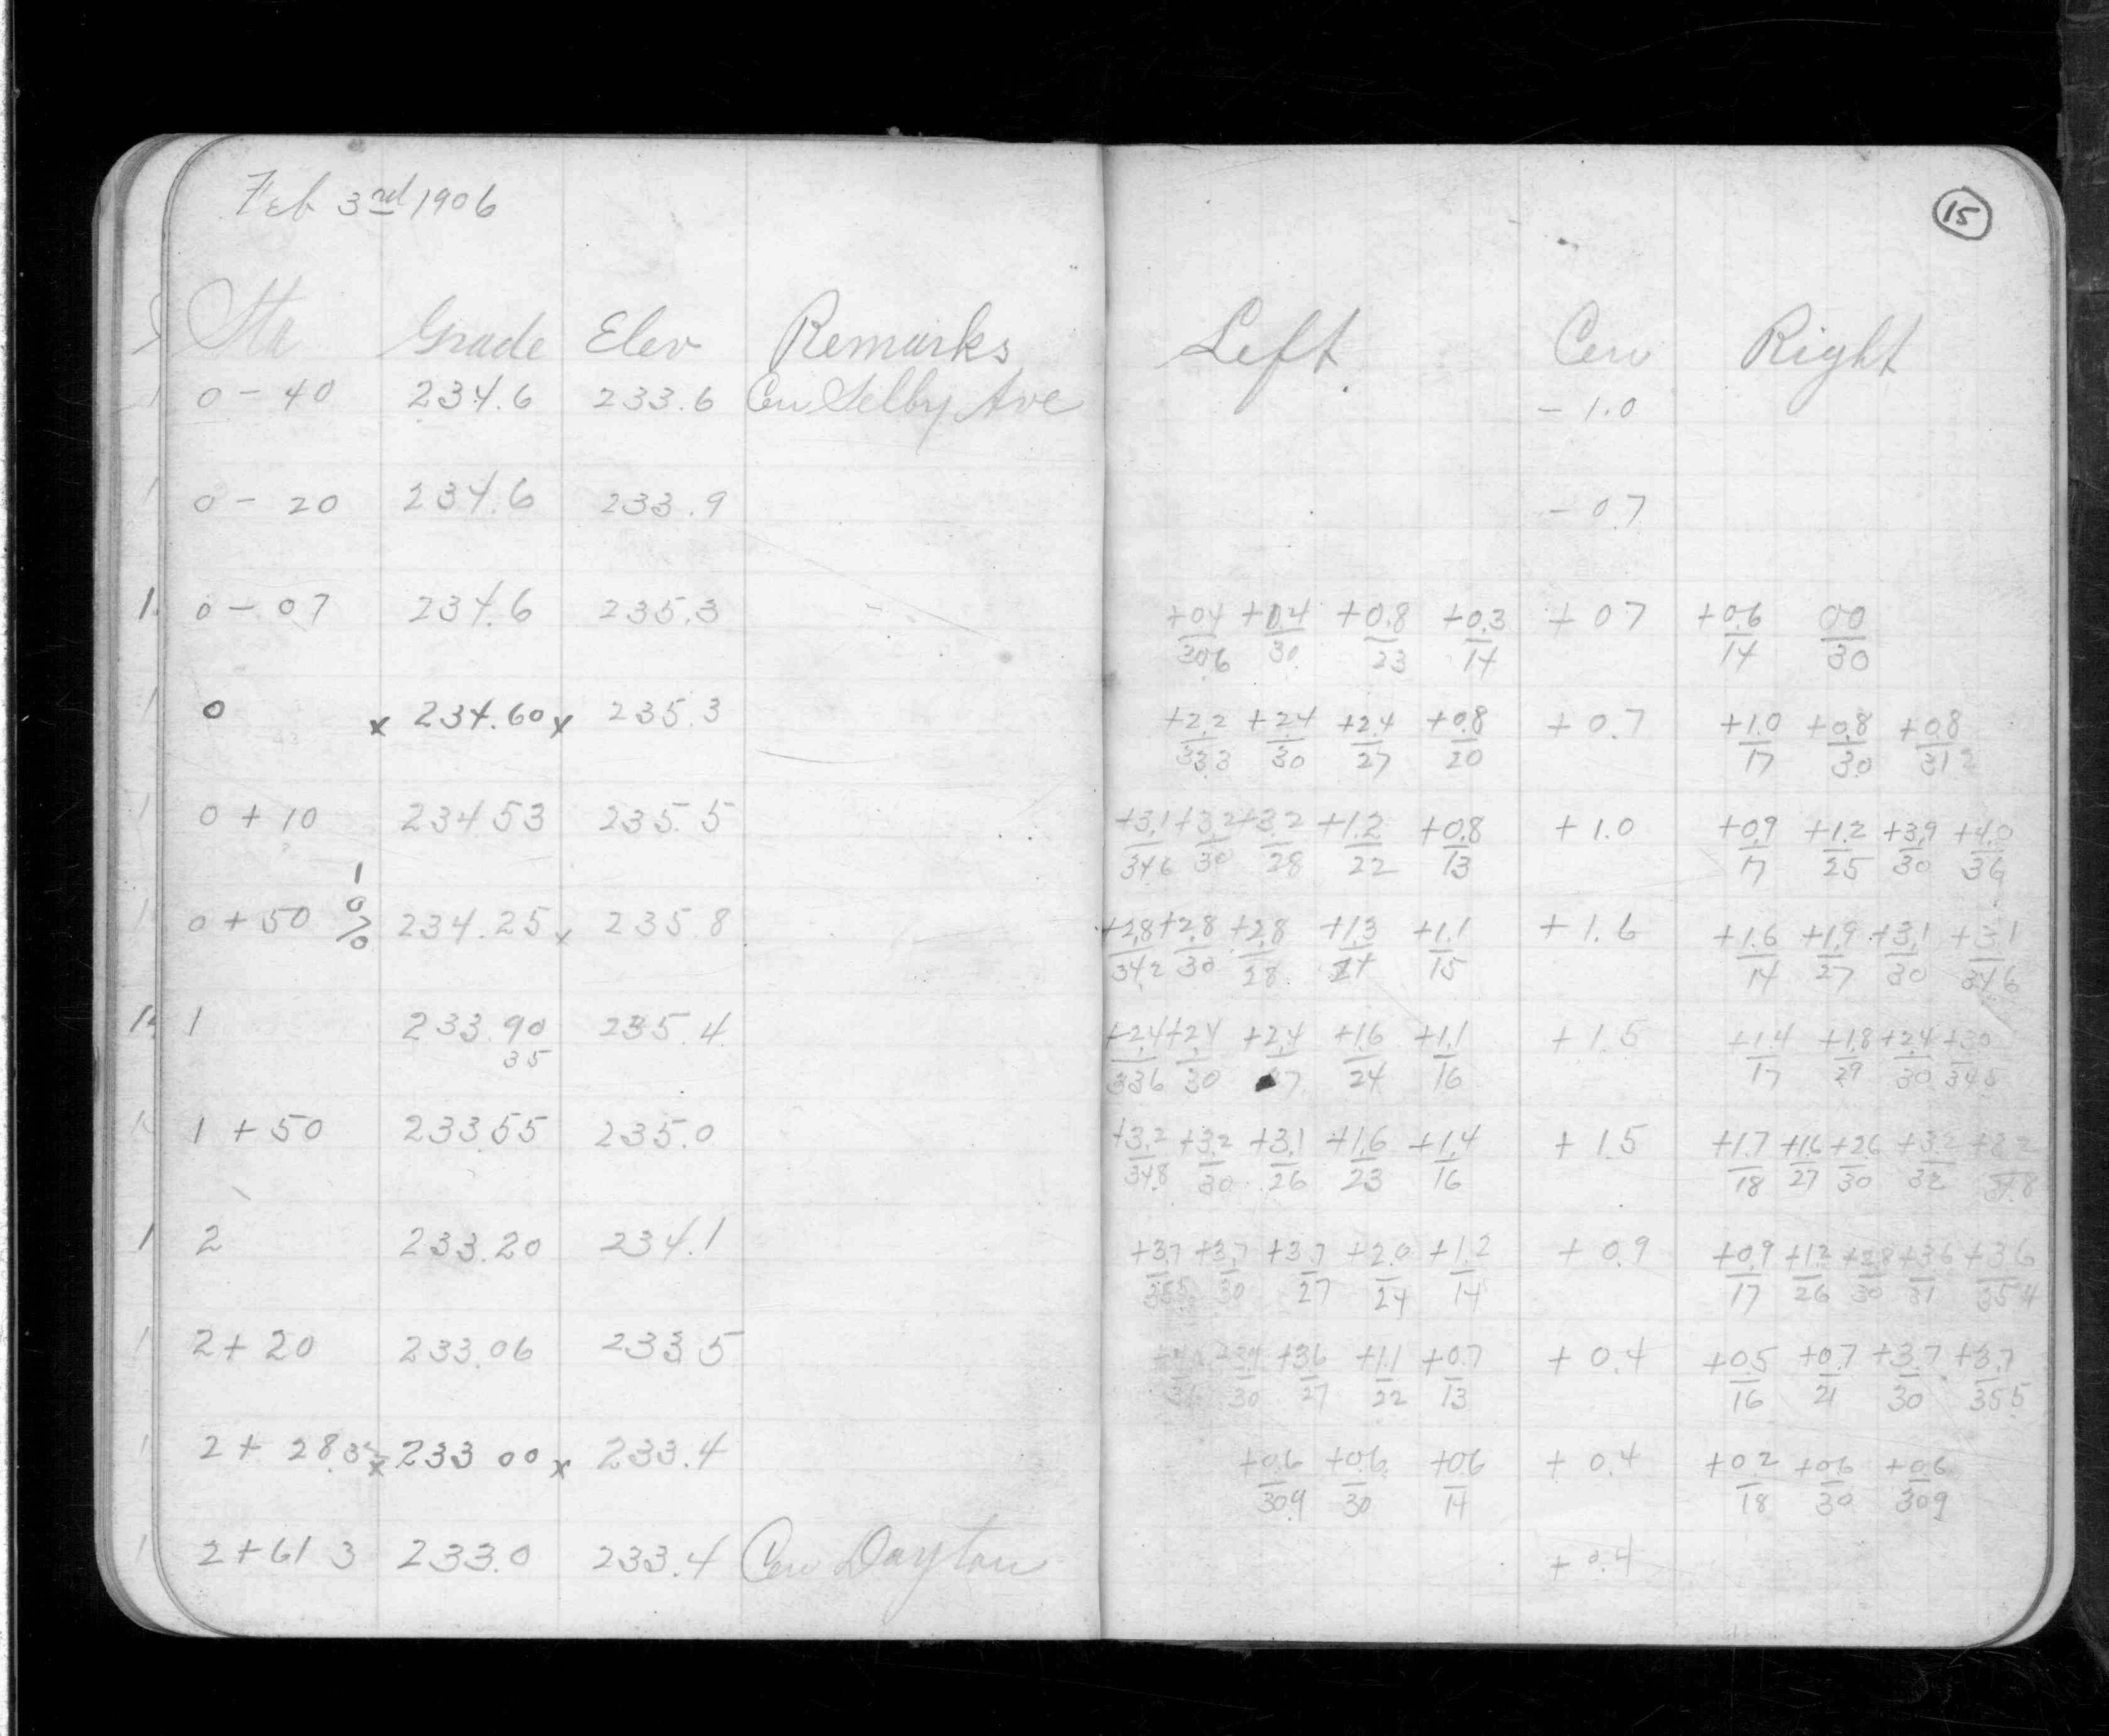 Feb 3rd 1906
15
Sta Grade Elev Remarks Left Cen Right
0 - 40 234.6 233.6 Cen Selby Ave - 1.0
0 - 20 234.6 233.9 - 0.7
0 - 07 234.6 235.3 +0.4 +0.4 +0.8 +0.3 + 0.7 +0.6 0.0
30.6 30 23 14 14 30
0 x 234.60 x 235.3 +2.2 +2.4 +2.4 +0.8 + 0.7 +1.0 +0.8 +0.8
33.3 30 27 20 17 30 31.2
0 + 10 234.53 235.5 +3.1 +3.2 +3.2 +1.2 +0.8 + 1.0 +0.9 +1.2 +3.9 +4.0
34.6 30 28 22 13 17 25 30 36
0 + 50 234.25 x 235.8 +2.8 +2.8 +2.8 +1.3 +1.1 + 1.6 +1.6 +1.9 +3.1 +3.1
34.2 30 28 24 15 14 27 30 34.6
1 233.90 235.4 +2.4 +2.4 +2.4 +1.6 +1.1 + 1.5 +1.4 +1.8 +2.4 +3.0
35
33.6 30 27 24 16 17 29 30 34.5
1 + 50 233.55 235.0 +3.2 +3.2 +3.1 +1.6 +1.4 + 1.5 +1.7 +1.6 +2.6 +3.2 +3.2
34.8 30 26 23 16 18 27 30 32 34.8
2 233.20 234.1 +3.7 +3.7 +3.7 +2.0 +1.2 + 0.9 +0.9 +1.2 +2.8 +3.6 +3.6
35.5 30 27 24 14 17 26 30 31 35.4
2 + 20 233.06 233.5 +3.6 +1.1 +0.7 + 0.4 +0.5 +0.7 +3.7 +3.7
30 27 22 13 16 21 30 35.5
2 + 28.3 x 233.00 x 233.4 +0.6 +0.6 +0.6 + 0.4 +0.2 +0.6 +0.6
30.9 30 14 18 30 30.9
2 + 61.3 233.0 233.4 Cen Dayton + 0.4